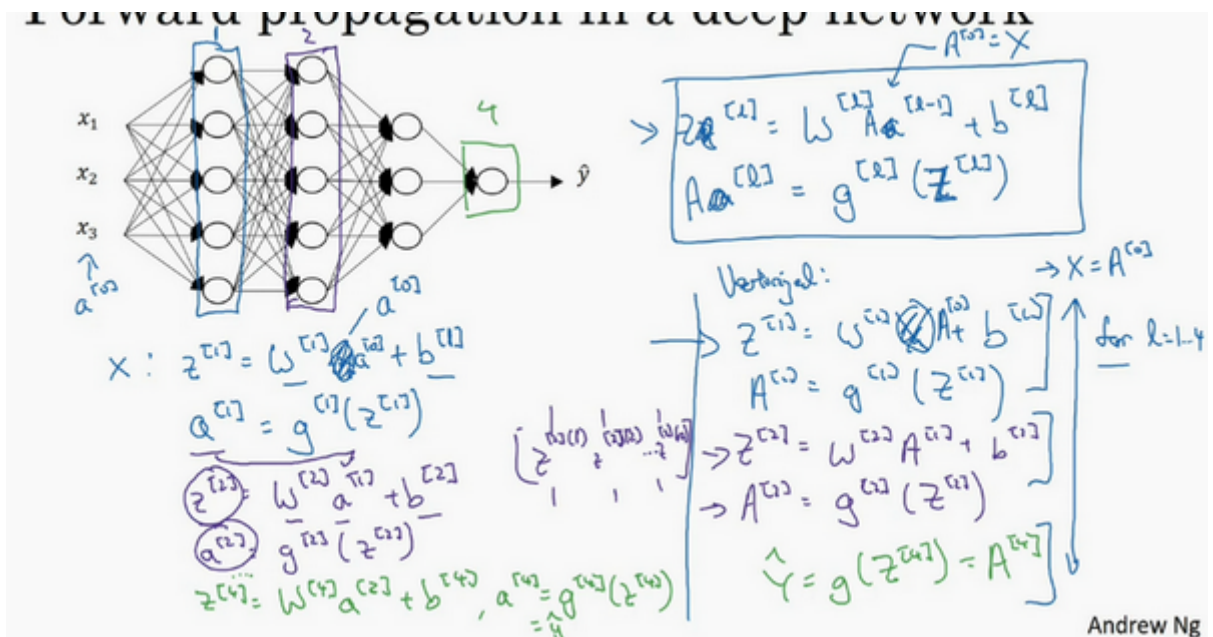 Forward propagation in a deep network
1
2
4
x₁
x₂
x₃
ŷ
a^[0]
a^[0]
X : z^[1] = W^[1] a^[0] + b^[1]
a^[1] = g^[1](z^[1])
z^[2] = W^[2] a^[1] + b^[2]
a^[2] = g^[2](z^[2])
z^[4] = W^[4] a^[2] + b^[4], a^[4] = g^[4](z^[4])
= ŷ
A^[0] = X
→ Z^[l] = W^[l] A^[l-1] + b^[l]
A^[l] = g^[l](Z^[l])
→ X = A^[0]
→ Z^[1] = W^[1] A^[0] + b^[1]
A^[1] = g^[1](Z^[1])
→ Z^[2] = W^[2] A^[1] + b^[2]
→ A^[2] = g^[2](Z^[2])
Ŷ = g(Z^[4]) = A^[4]
for l=1..4
Andrew Ng